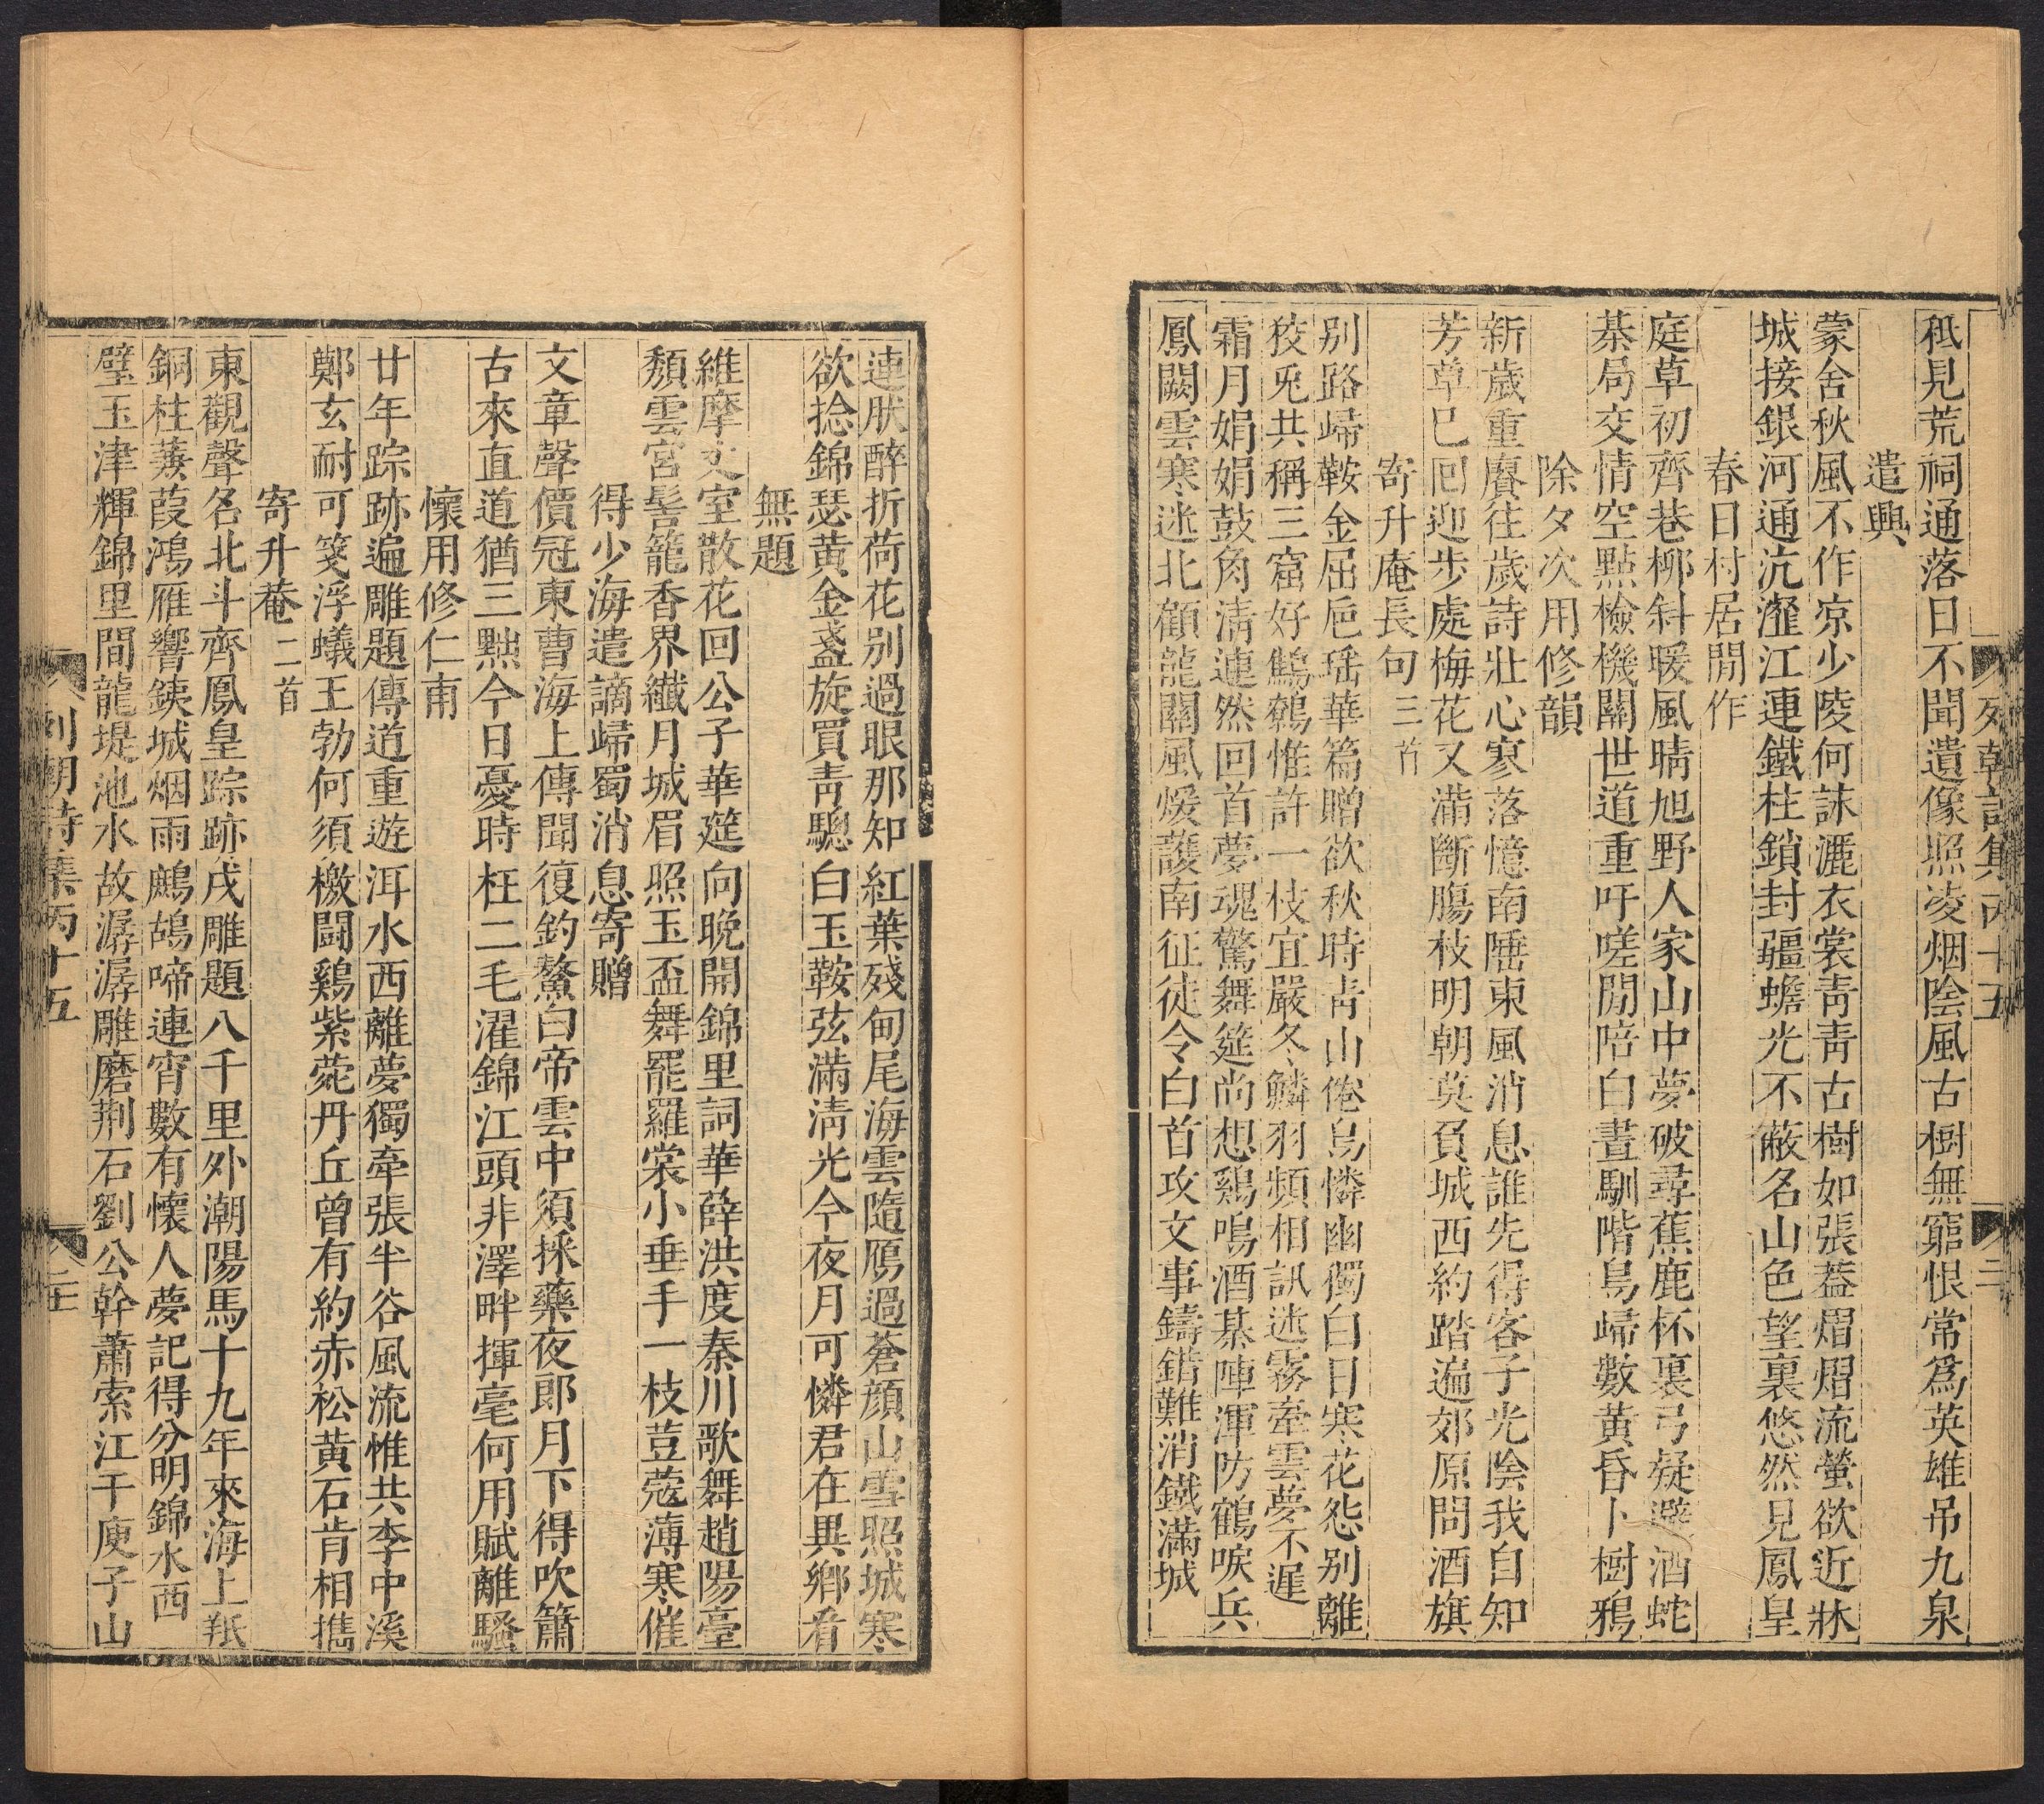 祗見荒祠通落日不聞遺像照凌烟陰風古樹無窮恨常爲英雄吊九泉
遣興
蒙舍秋風不作凉少陵何訹灑衣裳靑靑古樹如張蓋熠熠流螢欲近牀
城接銀河通沆瀣江連鐵柱鎖封疆蟾光不蔽名山色望裏悠然見鳳皇
春日村居閒作
庭草初齊巷柳斜暖風晴旭野人家山中夢破尋蕉鹿杯裏弓疑避酒蛇
棊局交情空點檢機關世道重吁嗟閒陪白晝馴階鳥歸數黃昏卜樹鴉
除夕次用修韻
新歲重賡往歲詩壯心寥落憶南陲東風消息誰先得客子光陰我自知
芳草巳囘迎步處梅花又滿斷腸枝明朝莫負城西約踏遍郊原問酒旗
寄升庵長句三首
别路歸鞍金屈巵瑤華篇贈欲秋時靑山倦鳥憐幽獨白日寒花怨别離
狡兎共稱三窟好鷦鷯惟許一枝宜嚴冬鱗羽頻相訊迷霧牽雲夢不遲
霜月娟娟鼓角淸連然回首夢魂驚舞筵尚想鷄鳴酒棊陣渾防鶴唳兵
鳳闕雲寒迷北顧龍關風煖護南征徒令白首攻文事鑄錯難消鐵滿城
列朝詩集丙十五
連肰醉折荷花别過眼那知紅葉殘甸尾海雲隨鴈過蒼顔山雪照城寒
欲捻錦瑟黃金盞旋買靑驄白玉鞍弦滿淸光今夜月可憐君在異鄕看
無題
維摩丈室散花回公子華筵向晚開錦里詞華薛洪度秦川歌舞趙陽臺
頮雲宮髻籠香界纖月城眉照玉盃舞罷羅裳小垂手一枝荳蔻薄寒催
得少海遣謫歸蜀消息寄贈
文章聲價冠東曹海上傳聞復釣鰲白帝雲中須採藥夜郎月下得吹簫
古來直道猶三黜今日憂時枉二毛濯錦江頭非澤畔揮毫何用賦離騷
懷用修仁甫
廿年踪跡遍雕題傳道重遊洱水西離夢獨牽張半谷風流惟共李中溪
鄭玄耐可箋浮蟻王勃何須檄鬬鷄紫菀丹丘曾有約赤松黃石肯相擕
寄升菴二首
東觀聲名北斗齊鳳皇踪跡戍雕題八千里外潮陽馬十九年來海上羝
銅柱蒹葭鴻雁響銕城烟雨鷓鴣啼連宵數有懷人夢記得分明錦水西
璧玉津輝錦里間龍堤池水故潺潺雕磨荆石劉公幹蕭索江干庾子山
列朝詩集丙十五